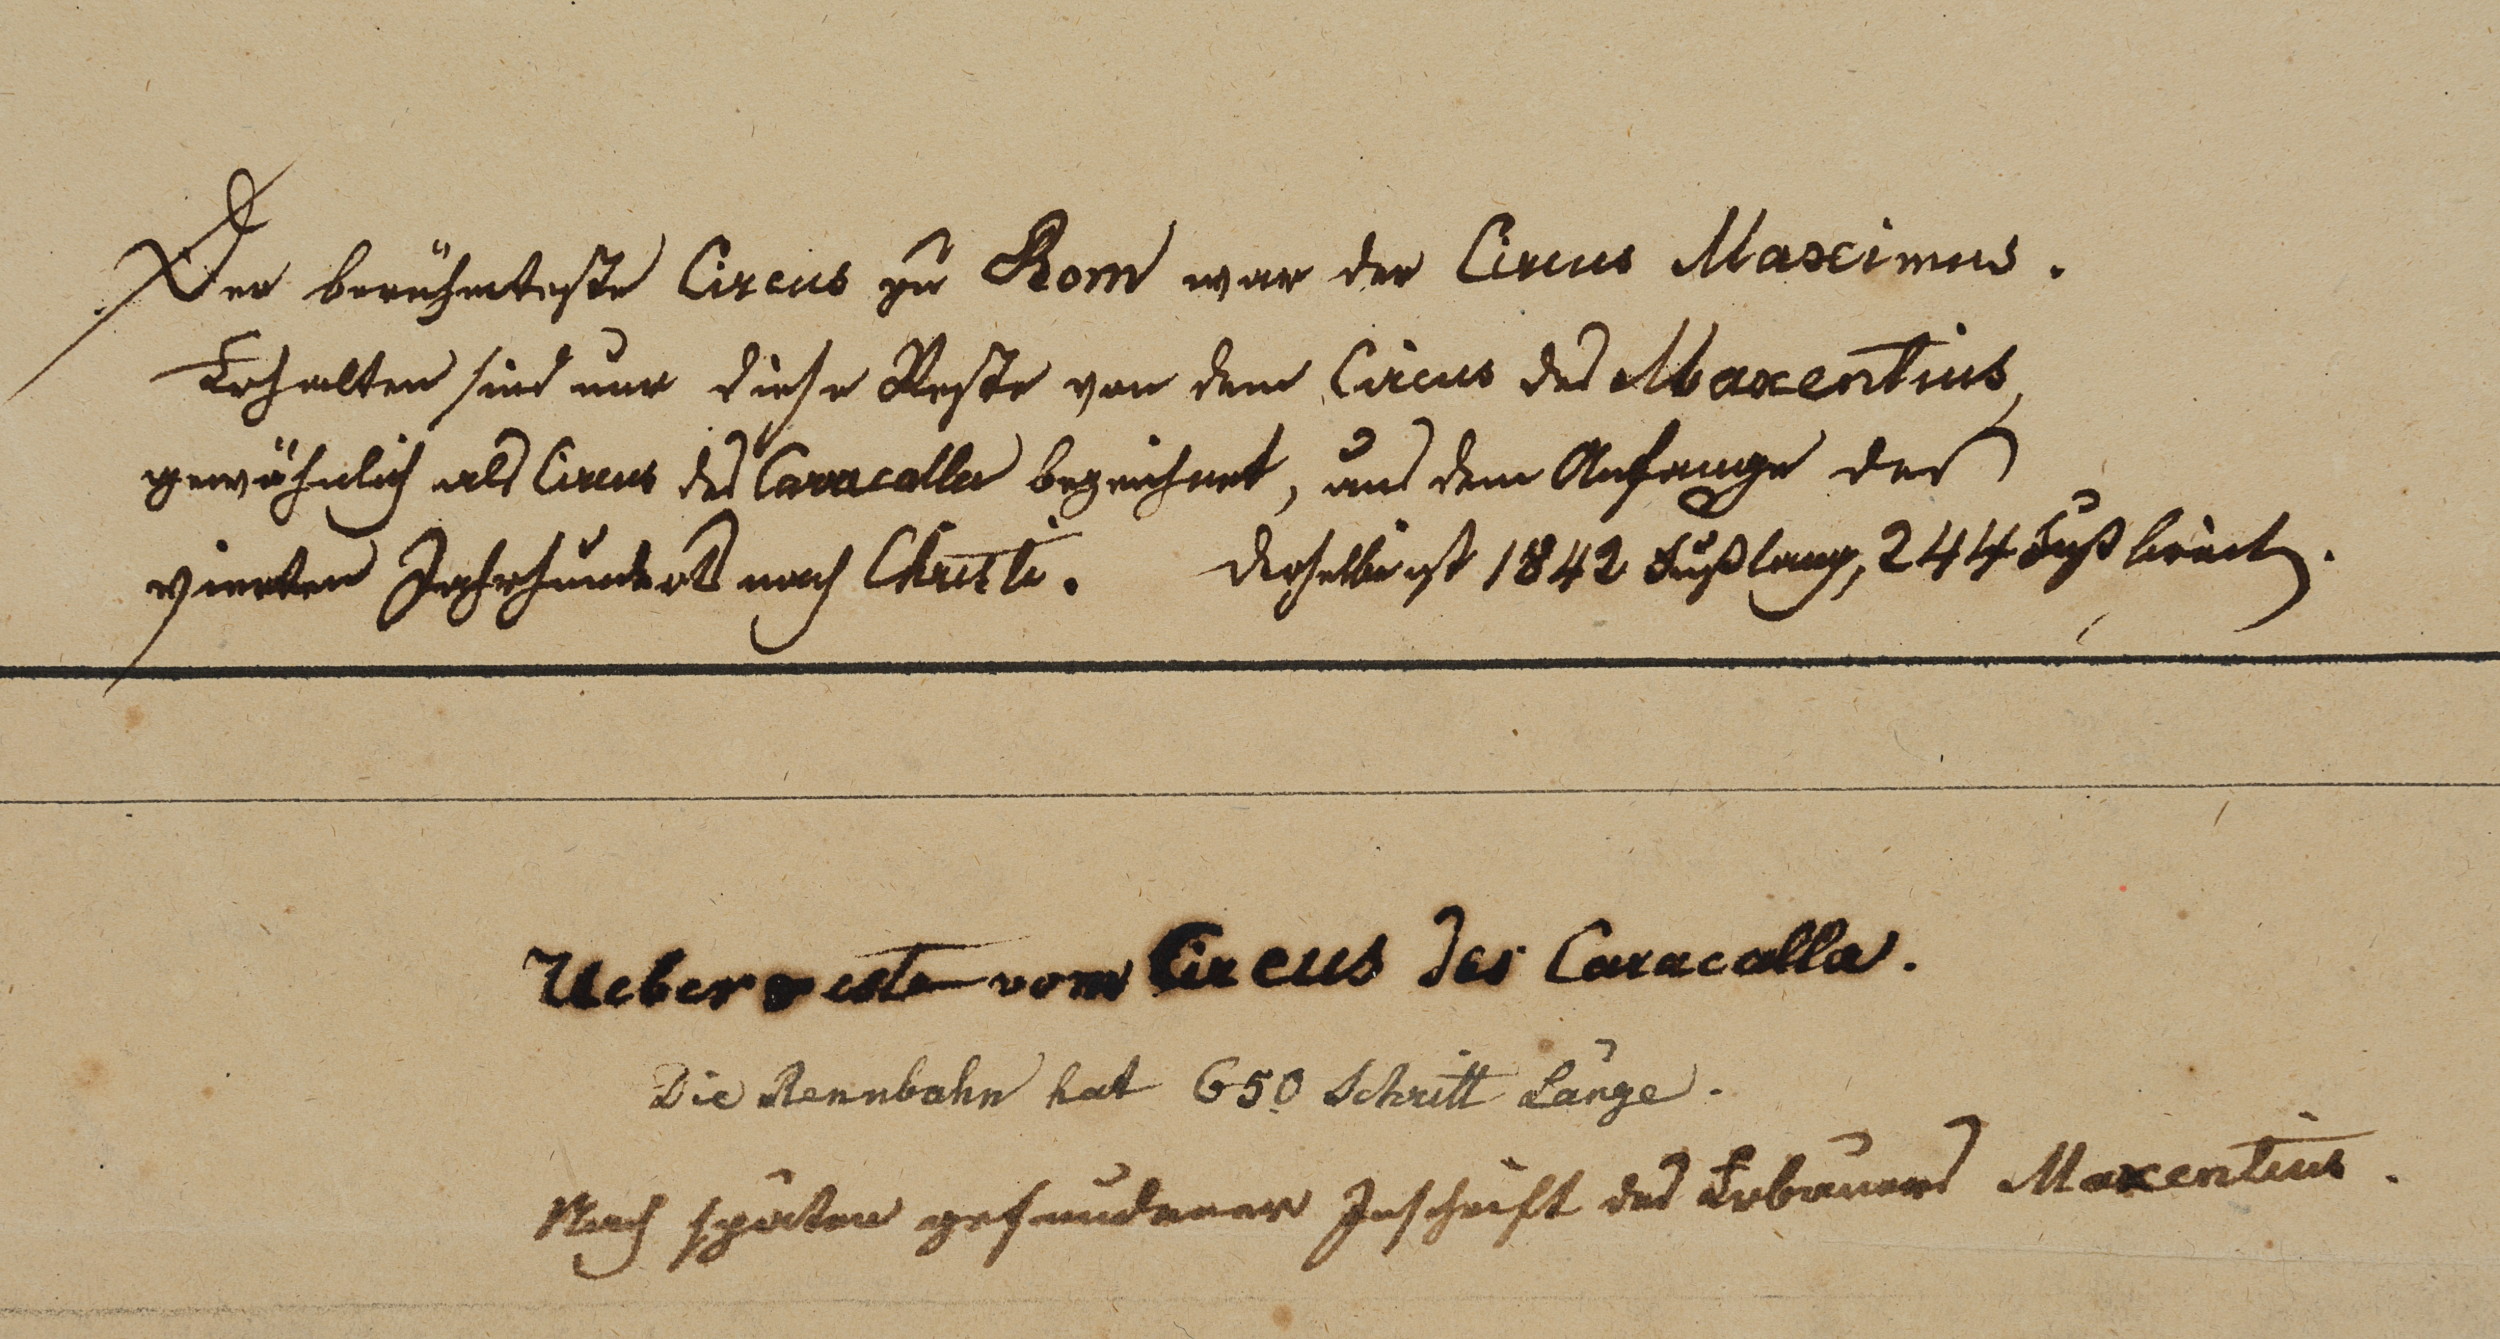 Der berühmteste Circus zu Rom war der Circus Maximus.
Erhalten sind nur diese Reste von dem Circus des Maxentius,
gewöhnlich als Circus des Caracalla bezeichnet, aus dem Anfange des
vierten Jahrhunderts nach Christi. Derselbe ist 1842 Fuß lang, 244 Fuß breit.
Ueberreste vom Circus des Caracalla.
Die Rennbahn hat 650 Schritt Länge.
Nach später gefundener Inschrift des Erbauers Maxentius.